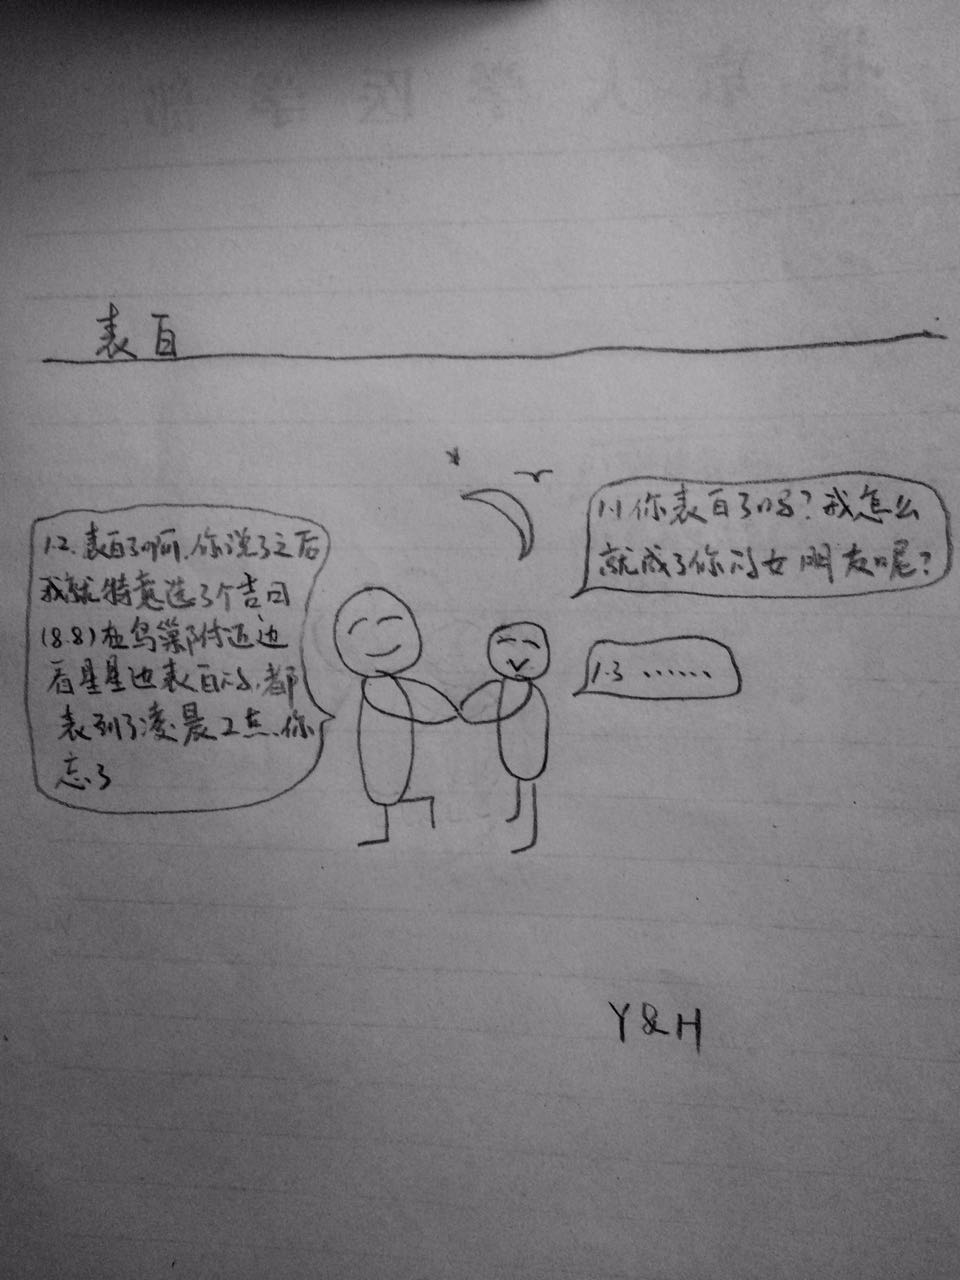 北京大学医学部
表白
1.1 你表白了吗?我怎么
就成了你的女朋友呢?
1.2. 表白了啊.你说了之后
我就特意选了个吉日
(8.8)在鸟巢附近边
看星星边表白的,都
表到了凌晨2点.你
忘了
1.3 ……
Y&H